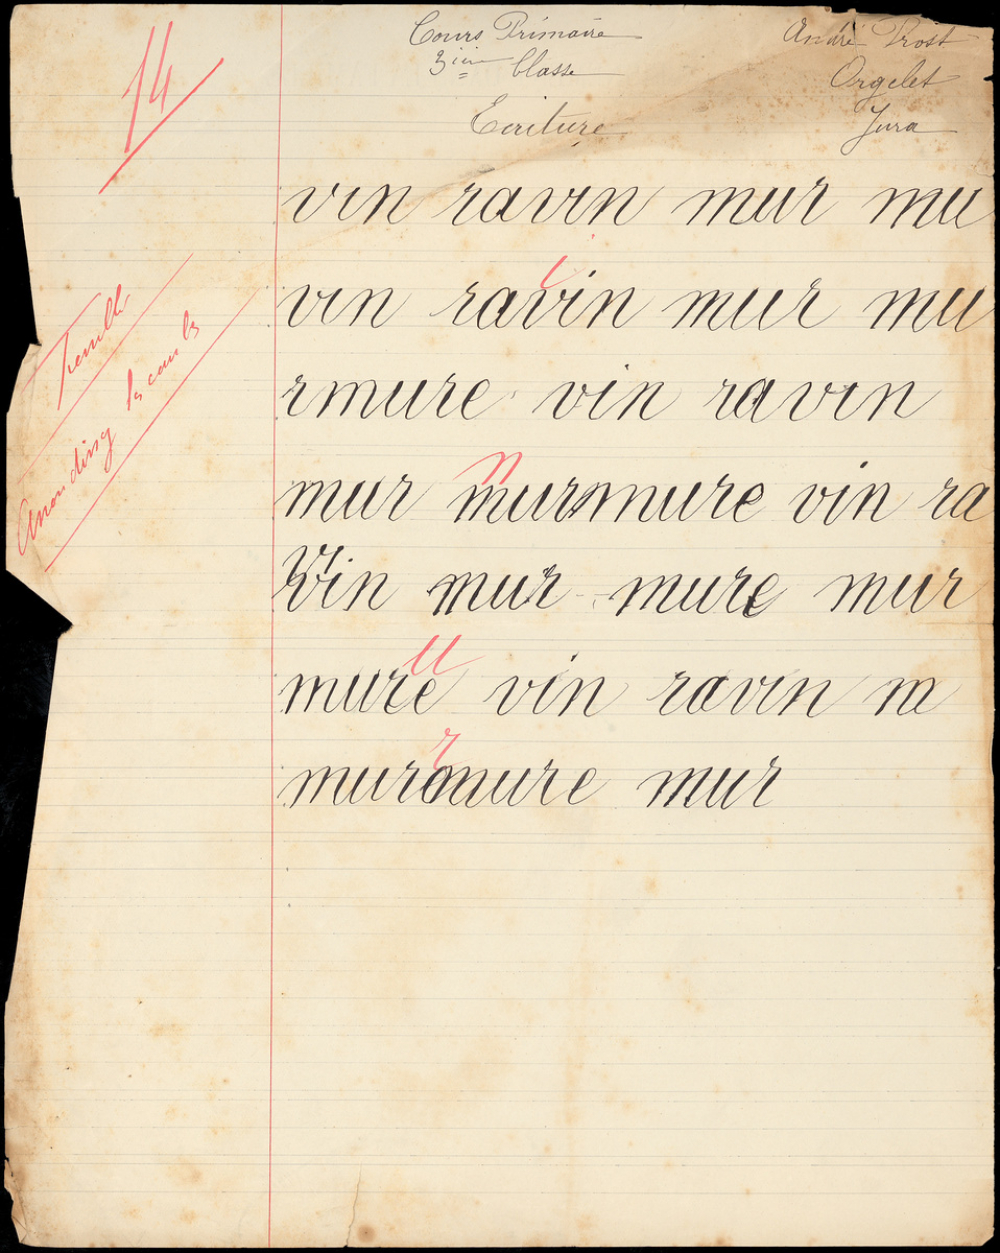 14
Cours Primaire
3ième Classe
Ecriture
André Prost
Orgelet
Jura
vin ravin mur mu
vin ravin mur mu
i
rmure vin ravin
mur murmure vin ra
n
vin mur mure mur
vi
mure vin ravin m
u
murmure mur
r
Arrondissez les